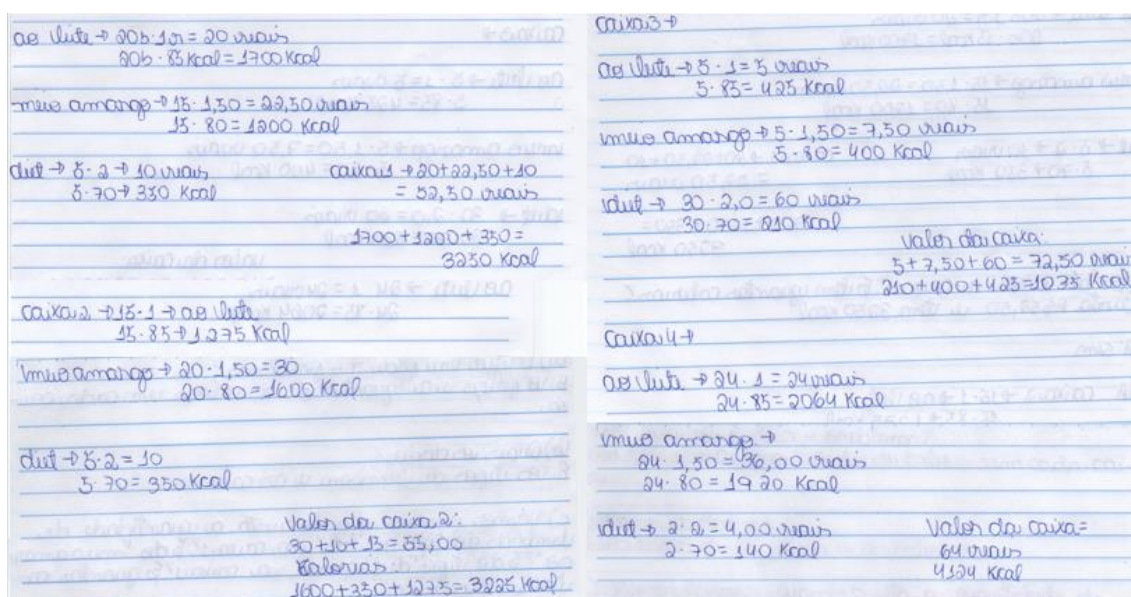 ao leite → 20b·1,0 = 20 reais
20b · 85 Kcal = 1700 Kcal
meio amargo → 15· 1,50 = 22,50 reais
15· 80 = 1200 Kcal
diet → 5· 2 → 10 reais
5·70 → 350 Kcal
caixa 1 → 20+22,50+10
= 52,50 reais
1700+1200+350=
3250 Kcal
caixa 2 → 15·1 → ao leite
15·85 → 1275 Kcal
meio amargo → 20·1,50 = 30
20·80 = 1600 Kcal
diet → 5·2 = 10
5·70 = 350 Kcal
Valor da caixa 2:
30+10+15 = 55,00
Kalorias:
1600+350+1275 = 3225 Kcal
caixa 3 →
ao leite → 5·1 = 5 reais
5·85 = 425 Kcal
meio amargo → 5·1,50 = 7,50 reais
5·80 = 400 Kcal
diet → 30·2,0 = 60 reais
30·70 = 210 Kcal
Valor da caixa:
5+7,50+60 = 72,50 reais
210+400+425=1035 Kcal
caixa 4 →
ao leite → 24·1 = 24 reais
24·85 = 2064 Kcal
meio amargo →
24·1,50 = 36,00 reais
24·80 = 1920 Kcal
diet → 2·2 = 4,00 reais
2·70 = 140 Kcal
Valor da caixa=
64 reais
4124 Kcal